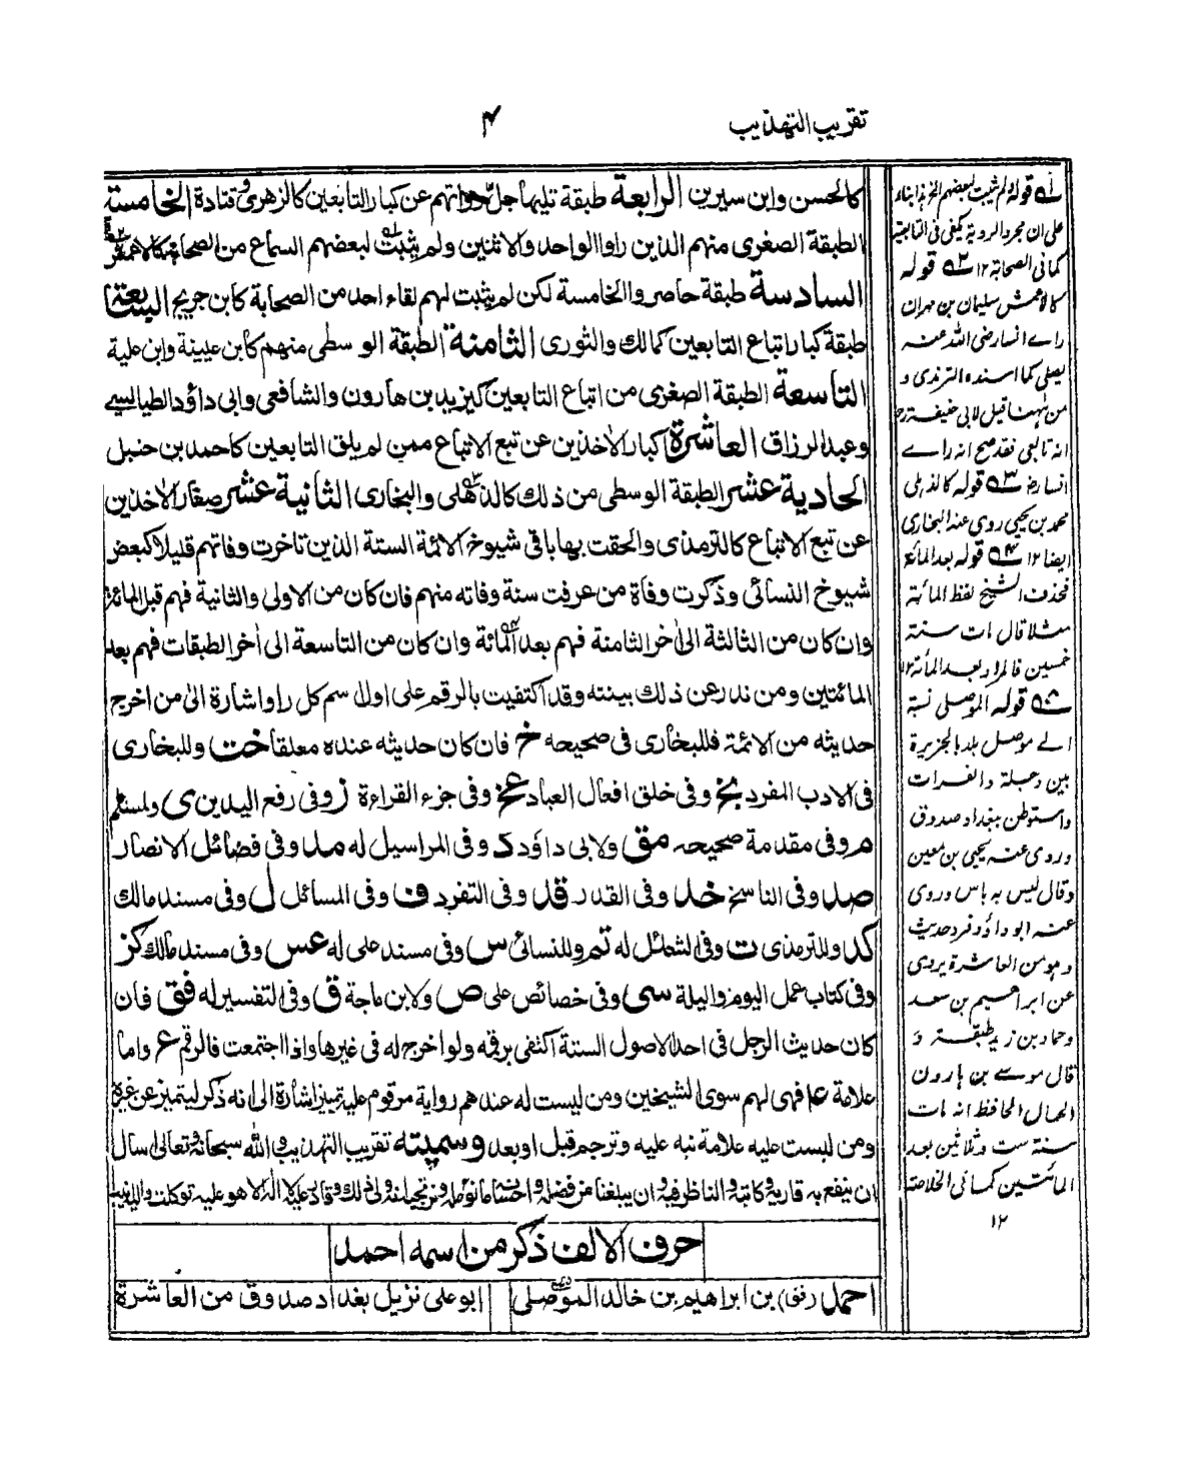 تقريب التهذيب
٤
كالحسن وابن سيرين الرابعة طبقة تليها جل رواتهم عن كبار التابعين كالزهرى وقتادة الخامسة
الطبقة الصغرى منهم الذين راوا الواحد والاثنين ولم يثبت لبعضهم السماع من الصحابة كالاعمش
السادسة طبقة حاصروا الخامسة لكن لم يثبت لهم لقاء احد من الصحابة كابن جريج السابعة
طبقة كبار اتباع التابعين كمالك والثورى الثامنة الطبقة الوسطى منهم كابن عيينة وابن علية
التاسعة الطبقة الصغرى من اتباع التابعين كيزيد بن هارون والشافعى وابى داؤد الطيالسے
وعبد الرزاق العاشرة كبار الآخذين عن تبع الاتباع ممن لم يلق التابعين كاحمد بن حنبل
الحادية عشر الطبقة الوسطى من ذلك كالذهلى والبخارى الثانية عشر صغار الآخذين
عن تبع الاتباع كالترمذى والحقت بها باقى شيوخ الائمة الستة الذين تاخرت وفاتهم قليلا كبعض
شيوخ النسائى وذكرت وفاة من عرفت سنة وفاته منهم فان كان من الاولى والثانية فهم قبل المائة
وان كان من الثالثة الى آخر الثامنة فهم بعد المائة وان كان من التاسعة الى آخر الطبقات فهم بعد
المائتين ومن ندر عن ذلك بينته وقد اكتفيت بالرقم على اول اسم كل راو اشارة الى من اخرج
حديثه من الائمة فللبخارى فى صحيحه خ فان كان حديثه عنده معلقا خت وللبخارى
فى الادب المفرد بخ وفى خلق افعال العباد عخ وفى جزء القراءة ز وفى رفع اليدين ى ولمسلم
م وفى مقدمة صحيحه مق ولابى داؤد د وفى المراسيل له مد وفى فضائل الانصار
صد وفى الناسخ خد وفى القدر قد وفى التفرد ف وفى المسائل ل وفى مسند مالك
كد وللترمذى ت وفى الشمائل له تم وللنسائى س وفى مسند على له عس وفى مسند مالك كز
وفى كتاب عمل اليوم والليلة سى وفى خصائص على ص ولابن ماجة ق وفى التفسير له فق فان
كان حديث الرجل فى احد الاصول الستة اكتفى برقمه ولو اخرج له فى غيرها واذا اجتمعت فالرقم ع واما
علامة عا فهى لهم سوى الشيخين ومن ليست له عندهم رواية مرقوم عليه تمييز اشارة الى انه ذكر ليتميز عن غيره
ومن ليست عليه علامة نبه عليه وترجم قبل او بعد وسميته تقريب التهذيب والله سبحانه وتعالى اسال
ان ينفع به قاريه وكاتبه والناظر فيه وان يبلغنا من فضله واحسانه ما نؤمله ونرتجيه انه ولى ذلك وقادر عليه لا اله الا هو عليه توكلت واليه انيب
حرف الالف ذكر من اسمه احمد
احمد (فق) بن ابراهيم بن خالد الموصلى ابو على نزيل بغداد صدوق من العاشرة
١ قوله لم يثبت لبعضهم الخ هذا بناء
على ان مجرد الروية يكفى فى التابعية
كما فى الصحابة ١٢ ٢ قوله
كالاعمش سليمان بن مهران
راے انسا رضى الله عنه
يصلى كما اسنده الترمذى و
من ههنا قيل لابى حنيفة رح
انه تابعى فقد صح انه راے
انسا رض ٣ قوله كالذهلى
محمد بن يحيى روى عنه البخارى
ايضا ١٢ ٤ قوله بعد المائة
فحذف الشيخ لفظ المائة
مثلا قال مات سنة
خمسين فالمراد بعد المأة ١٢
٥ قوله الموصلى نسبة
الے موصل بلد بالجزيرة
بين دجلة والفرات
واستوطن بغداد صدوق
وروى عنه يحيى بن معين
وقال ليس به باس وروى
عنه ابو داؤد فرد حديث
وهو من العاشرة يروى
عن ابراهيم بن سعد
وحماد بن زيد طبقة و
قال موسے بن هارون
الحمال الحافظ انه مات
سنة ست وثلاثين بعد
المائتين كما فى الخلاصة
١٢